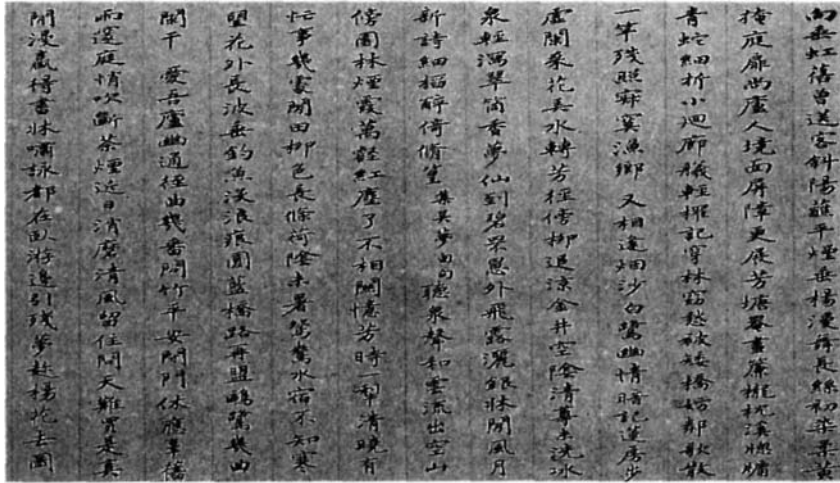 西垂虹舊曾送客斜陽籬平煙垂楊漫舞長絲和葉黃
掩庭扉幽廬人境面屏障更展芳塘暮畫簾櫳枕溪牕牖
青蛇細折小迴廊機輕櫂記穿林窈愁被矮橋妨都歌散
一竿殘照寂寞漁鄉 又相逢烟沙白鷺幽情暗記蓮房步
虛閒采花弄水轉芳徑傍柳追涼金井空陰清尊未洗冰
泉輕瀉翠筒香夢仙到碧罘罳外飛露灑銀牀閒風月
新詩細搨醉倚脩篁 集吳夢窗句聽泉聲和雲流出空山
傍園林煙霞萬壑紅塵了不相關憶芳時一犁清曉有
忙事幾處閒田柳色長條荷陰未暑鴛鴦水宿不知寒
盟花外長波垂釣魚沒浪痕圓藍橋路再盟鷗鷺幾曲
闌干 愛吾廬幽通徑曲幾番問竹平安閉門休應箏語
雨邊庭情吹斷茶煙近日消磨清風留住閒天難買是真
閒漫贏得書牀嘯詠都在臥游邊引殘夢趁楊花去園